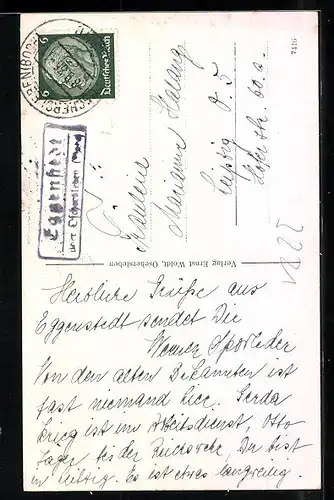 7416
OSCHERSLEBEN (BODE)
Deutsches Reich
6 6
Eggenstedt
über Oschersleben (Bode)
Fräulein
Marianne
Leipzig O 5
str. 60. a.
Verlag Ernst Woldt, Oschersleben
Herzliche Grüße aus
Eggenstedt sendet Dir
Werner Sporleder
Von den alten Bekannten ist
fast niemand hier. Gerda
Krieg ist im Arbeitsdienst, Otto
Jäger bei der Reichswehr, Du bist
in Leipzig. Es ist etwas langweilig.